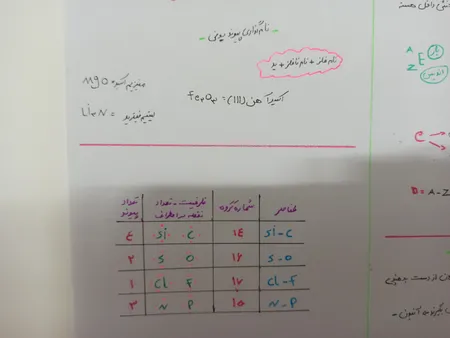 - نام‌گذاری پیوند یونی -
نام فلز + نام نافلز + ید
MgO منیزیم اکسید
Fe₂O₃ : اکسید آهن (III)
Li₃N = لیتیم نیترید
عناصر | شماره گروه | ظرفیت - تعداد نقطه در اطراف | تعداد پیوند
Si - C | ۱۴ | Si C | ۴
S - O | ۱۶ | S O | ۲
Cl - F | ۱۷ | Cl F | ۱
N - P | ۱۵ | N P | ۳
A
Z
E
e
n = A - Z